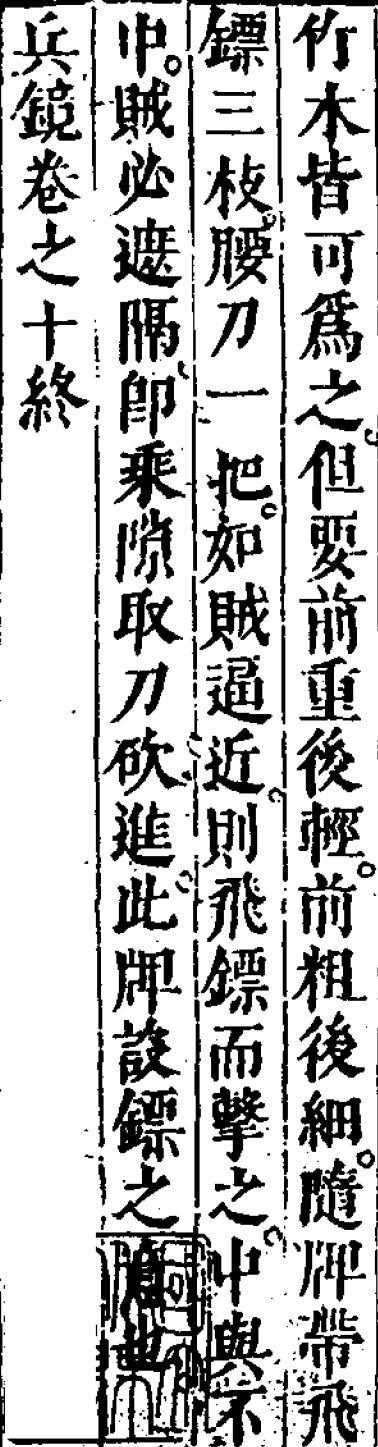 竹木皆可爲之但要前重後輕。前粗後細。隨牌帶飛
鏢三枝。腰刀一把。如賊逼近。則飛鏢而擊之。中與不
中。賊必遮隔、卽乘隙取刀砍進。此牌設鏢之意也
兵鏡卷之十終